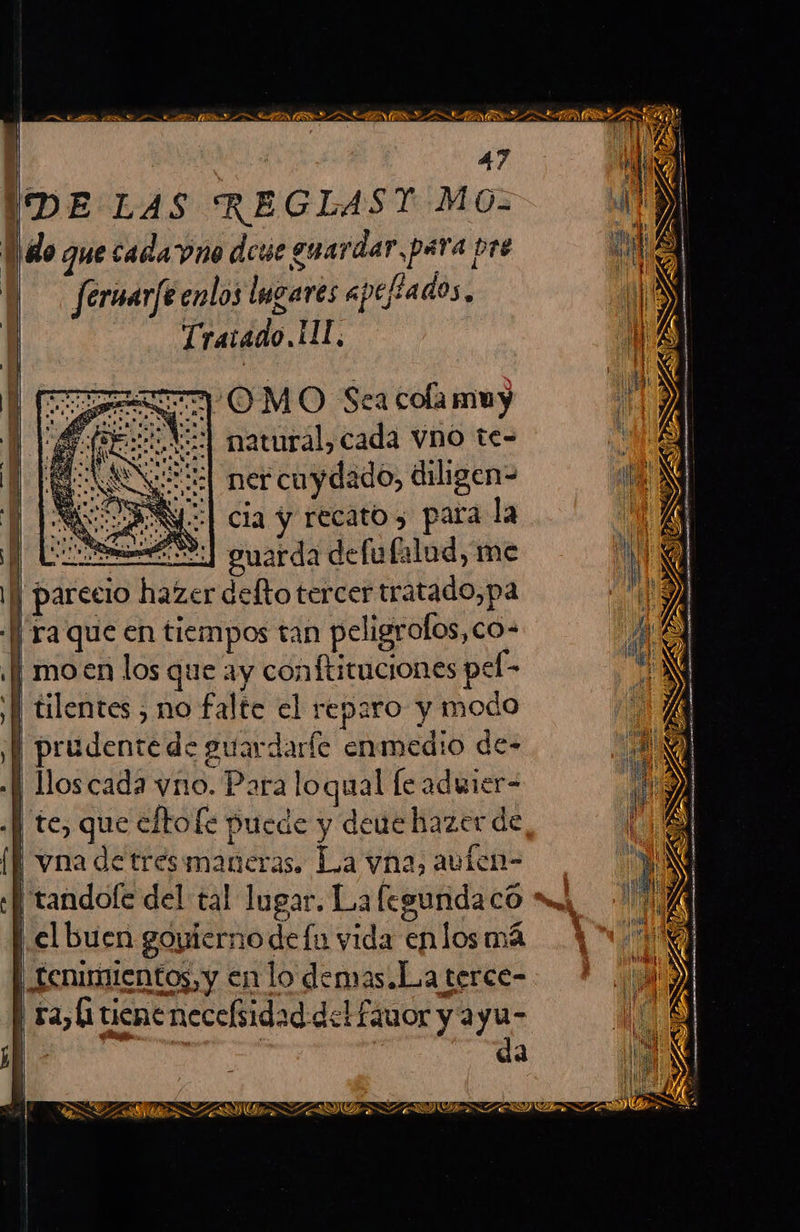 47
DE LAS REGLAS Y MO-
do que cada vno deue guardar, para pre
ſeruarſe en los lugares apeſtados.
Tratado. III.
COMO Sea coſa muy
natural, cada vno te-
ner cuydado, diligen-
cia y recato, para la
guarda de ſu ſalud, me
parecio hazer deſto tercer tratado, pa
ra que en tiempos tan peligroſos, co-
mo en los que ay conſtituciones peſ-
tilentes, no falte el reparo y modo
prudente de guardarſe en medio de-
llos cada vno. Para lo qual ſe aduier-
te, que eſto ſe puede y deue hazer de
vna de tres maneras. La vna, auſen-
tandoſe del tal lugar. La ſegunda cō
el buen gouierno de ſu vida en los mā
tenimientos, y en lo demas. La terce-
ra, ſi tiene neceſsidad del fauor y ayu-
da